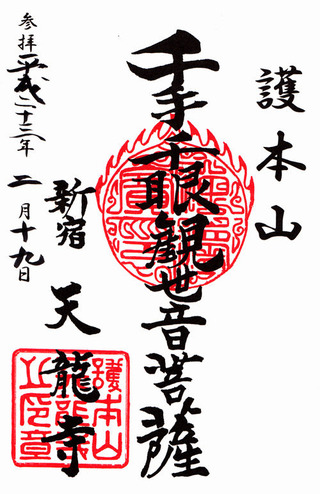 護本山
千手千眼観世音菩薩
新宿
天龍寺
参拝
平成二十三年
二月十九日
護本山
天龍寺
之印章